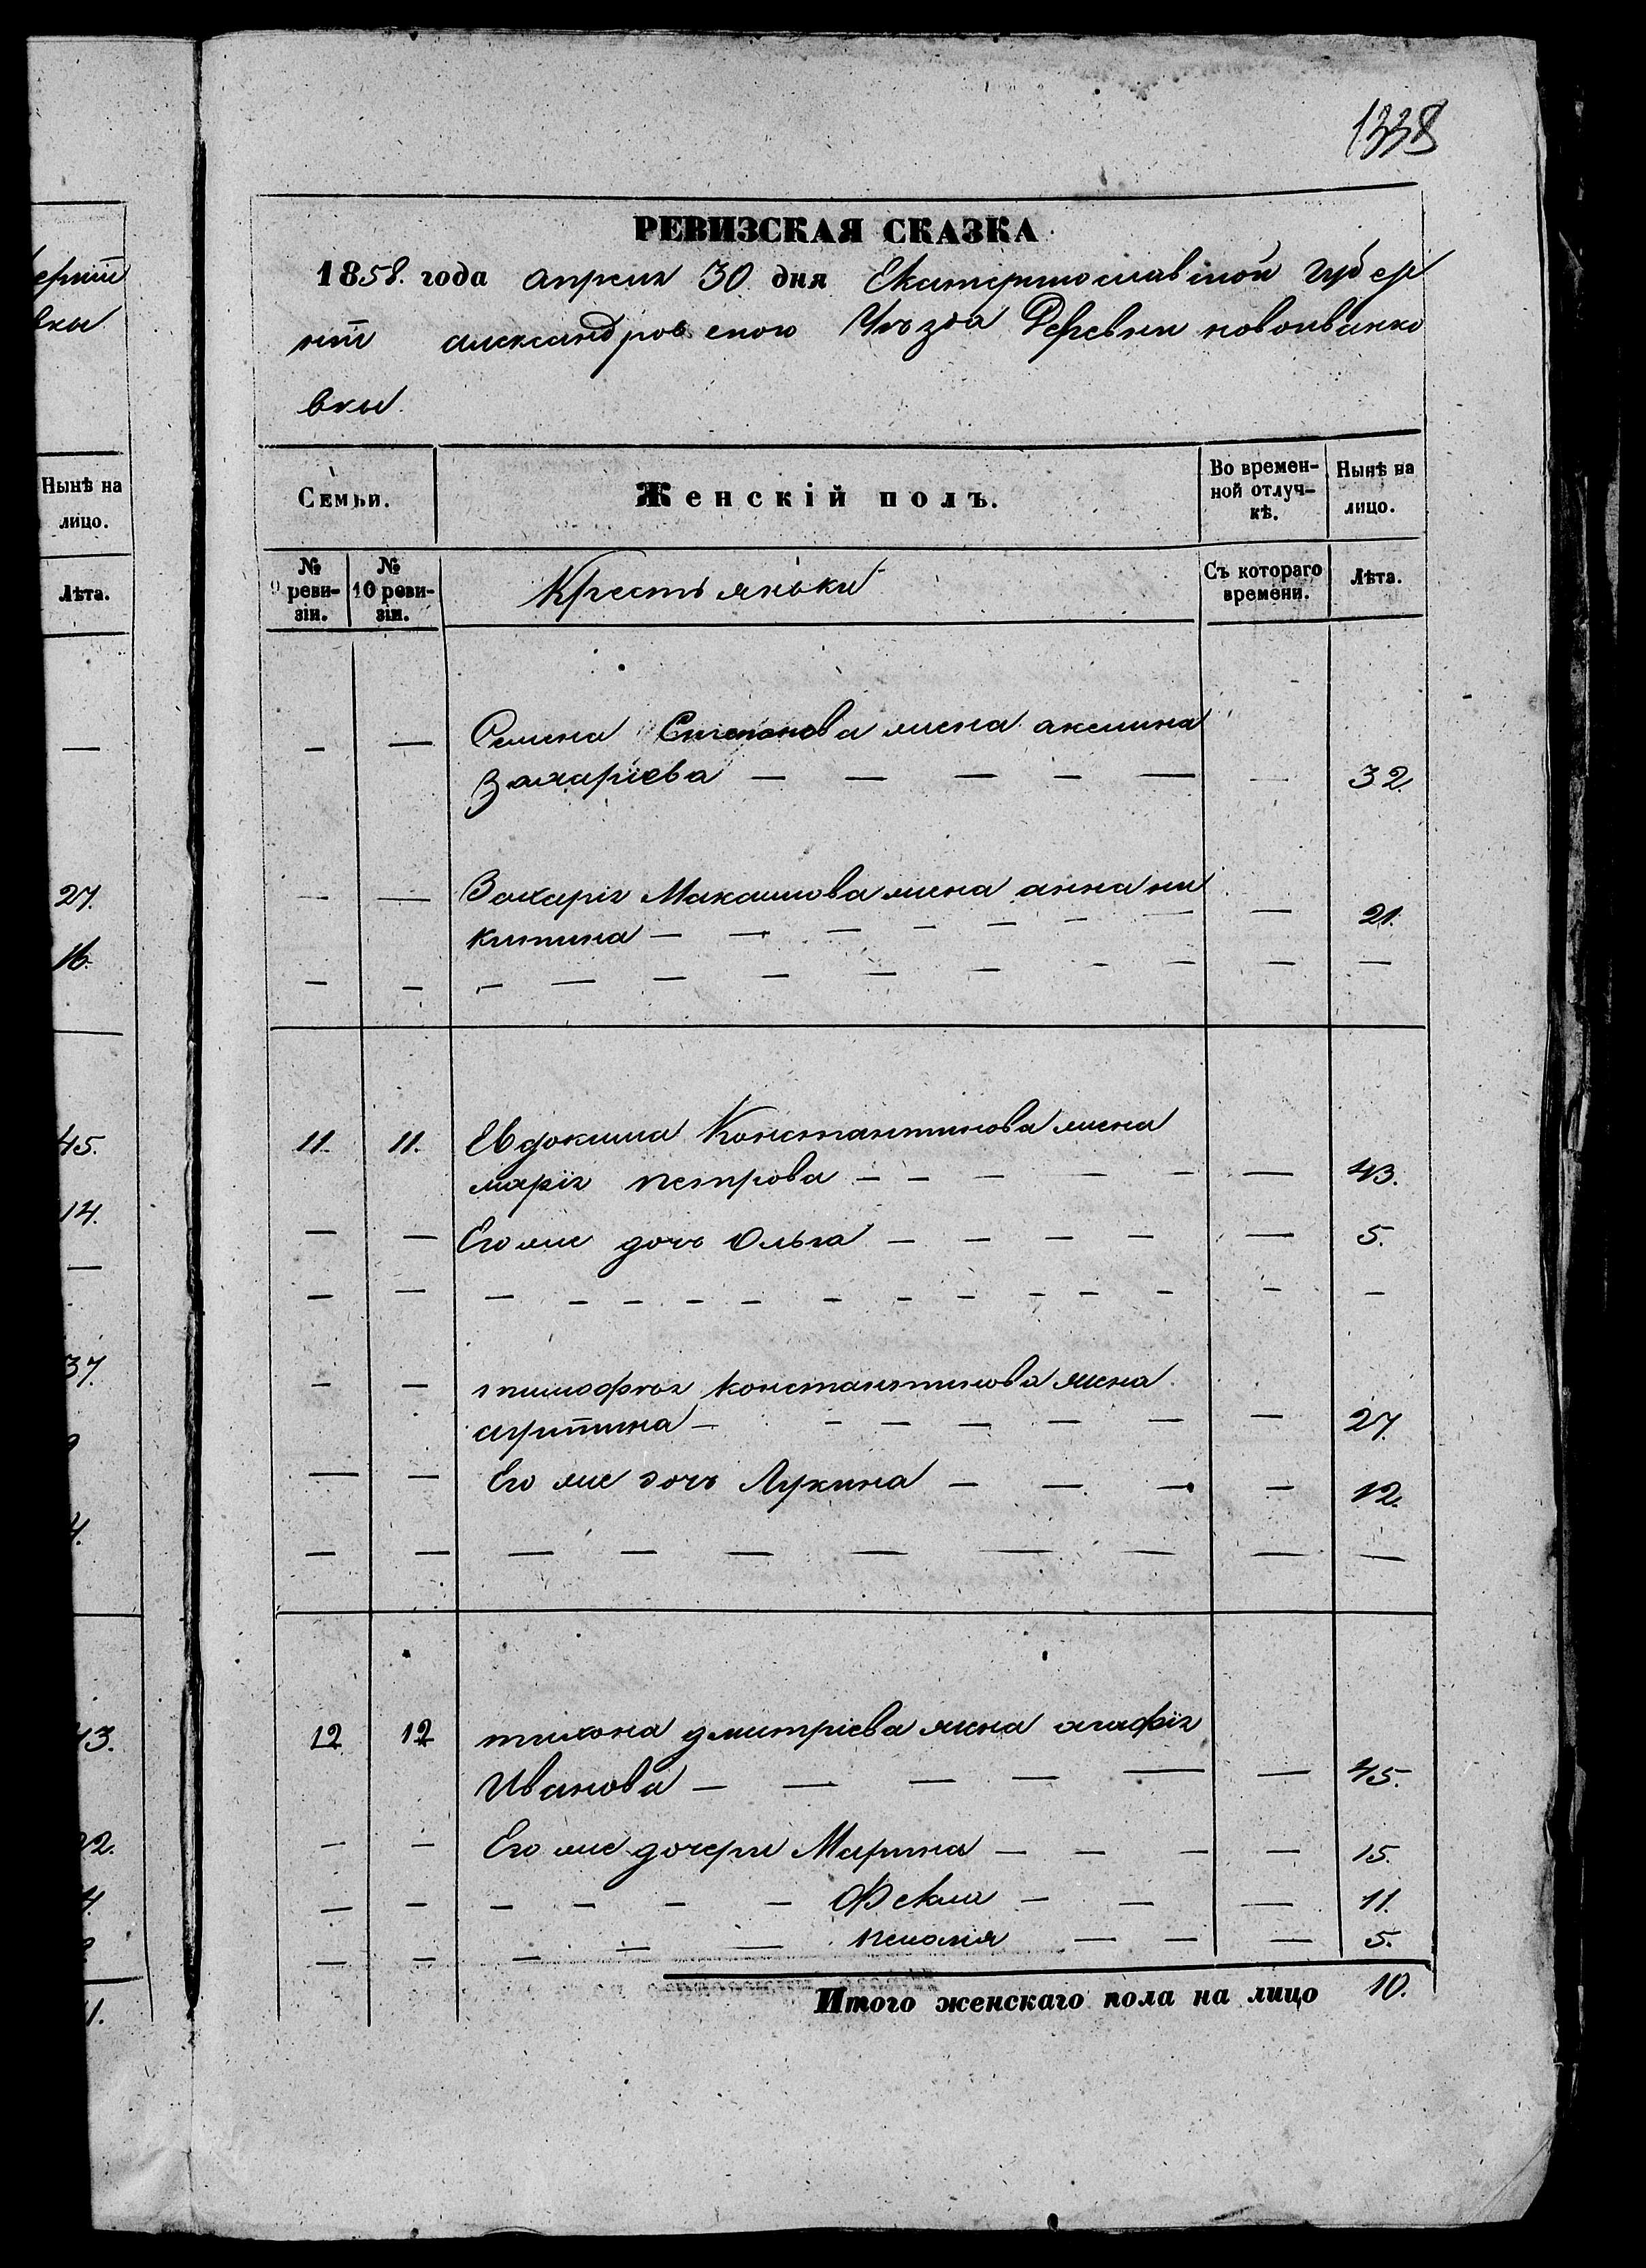 1338
ерніи
вки
РЕВИЗСКАЯ СКАЗКА
1858. года апреля 30 дня Екатеринославской губер
ніи александровского Уѣзда Деревни новоиванко
вки
Нынѣ на лицо.
Лѣта.
Семьи. Женскій полъ. Во временной отлучкѣ. Нынѣ на лицо.
№ 9 ревизіи. № 10 ревизіи. Крестьяньки Съ котораго времени. Лѣта.
— — Семена Степанова жена акелина
Захариева — — — — — — 32.
— — Захарія Макашова жена анна ни
китина — — — — — — — 21.
— — — — — — — — — — — — —
11. 11. Евдокима Константинова жена
марія петрова — — — — — — 43.
— — Его же дочь Ольга — — — — — 5.
— — — — — — — — — — — — — — —
— — тимофея константинова жена
агрипина — — — — — — — 27.
— — Его же дочь Лукина — — — — 12.
— — — — — — — — — —
12 12 тихона дмитріева жена агафія
Иванова — — — — — — 45.
— — Его же дочери Марина — — — — 15.
— — — — — — Фекла — — — 11.
— — — — — пелагия — — — 5.
Итого женскаго пола на лицо 10.
27.
16.
45.
14.
—
37.
43.
22.